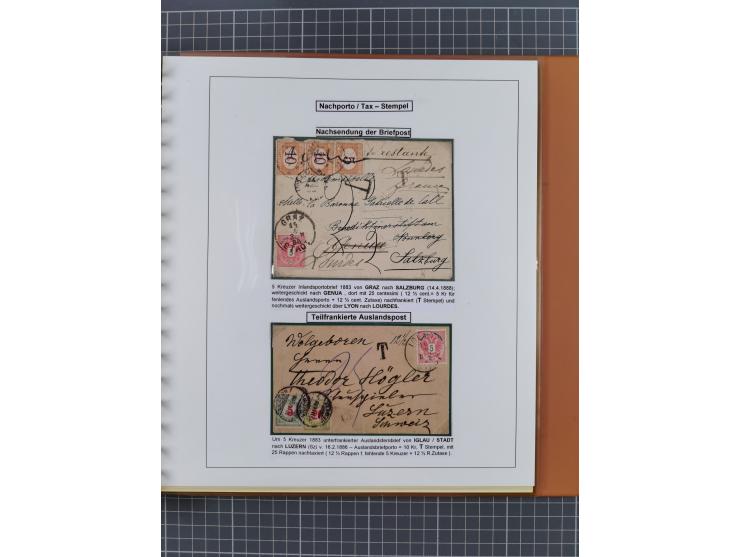 Nachporto / Tax – Stempel
Nachsendung der Briefpost
10 10 5
restant
Lourdes
France
T
T
GRAZ
5
Genua
Salzburg
Lourdes
5 Kreuzer Inlandsportobrief 1883 von GRAZ nach SALZBURG (14.4.1888);
weitergeschickt nach GENUA , dort mit 25 centesimi ( 12 ½ cent.= 5 Kr für
fehlendes Auslandsporto + 12 ½ cent. Zutaxe) nachfrankiert (T Stempel) und
nochmals weitergeschickt über LYON nach LOURDES.
Teilfrankierte Auslandspost
Wolgeboren
Herrn
T
5
Theodor Högler
Schauspieler
Luzern
Schweiz
Um 5 Kreuzer 1883 unterfrankierter Auslandsfernbrief von IGLAU / STADT
nach LUZERN (Sz) v. 16.2.1886 – Auslandsbriefporto = 10 Kr. T Stempel, mit
25 Rappen nachtaxiert ( 12 ½ Rappen f. fehlende 5 Kreuzer + 12 ½ R.Zutaxe ).